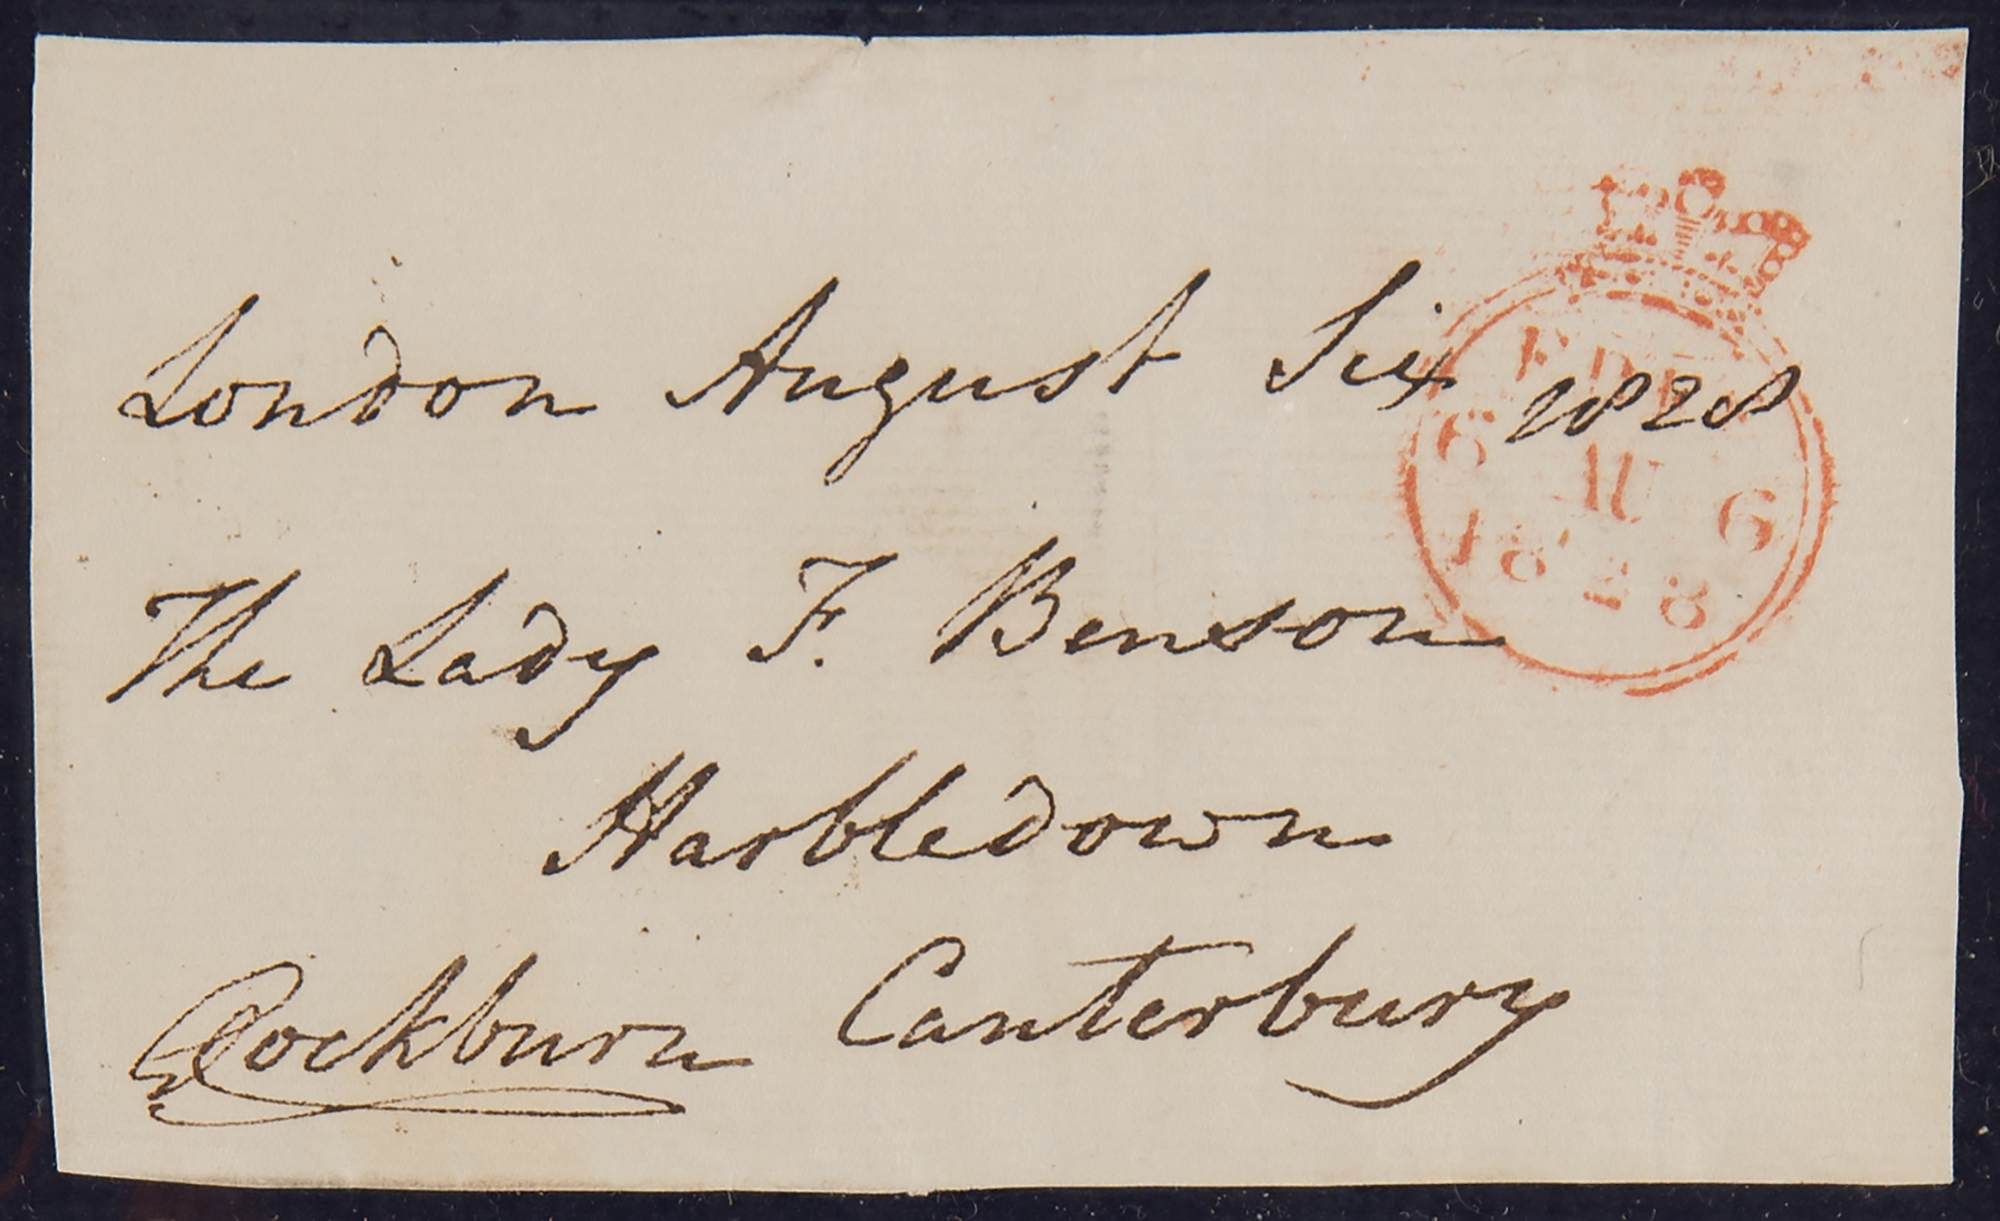 London August Six 1828
FREE
6 AU 6
1828
The Lady F. Benson
Harbledown
GCockburn Canterbury